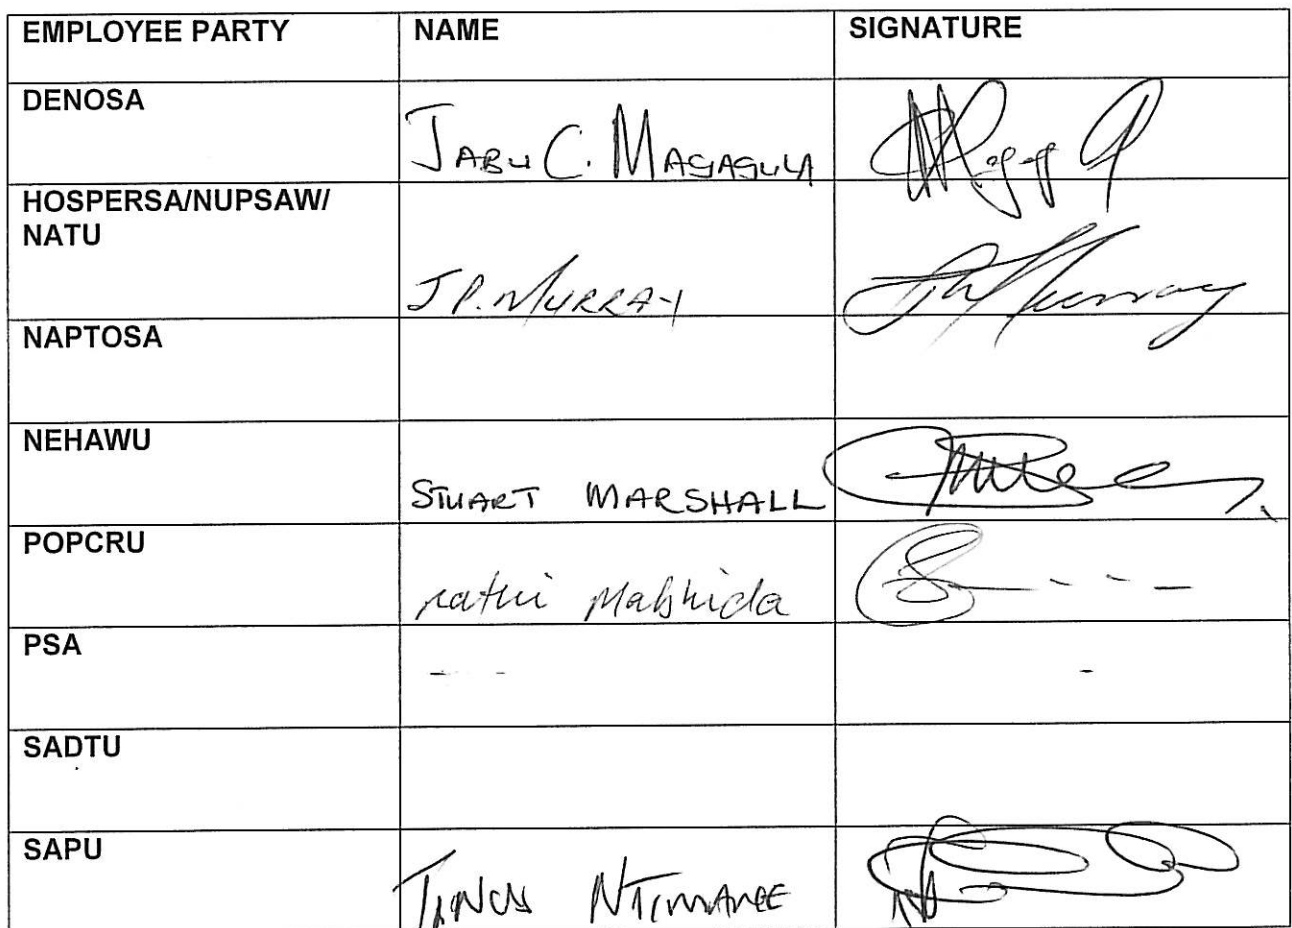 EMPLOYEE PARTY NAME SIGNATURE
DENOSA
JABU C. MAGAGULA
HOSPERSA/NUPSAW/
NATU
J P. MURRAY JP Murray
NAPTOSA
NEHAWU
STUART MARSHALL
POPCRU
PSA
- - - -
SADTU
SAPU